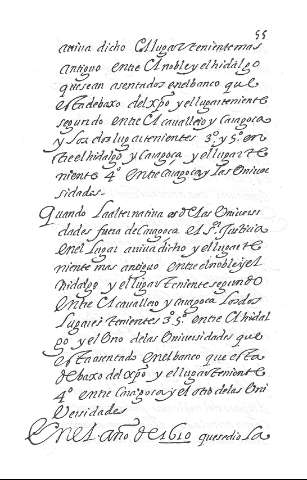 55
arriva dicho El lugar teniente mas
antiguo entre El noble y el hidalgo
que sean asentados en el banco que
esta debaxo del xpo y el lugarteniente
segundo entre El cavallero y Caragoca
y Los dos lugartenientes 3º y 5º en
tre el hidalgo y Caragoca y el lugar te
niente 4º entre Caragoca y las Univer
sidades.
Quando La alternativa es de las Universi
dades fuera de Caragoca el Sr. Justicia
en el Lugar arriva dicho y el lugar te
niente mas antiguo entre el noble y el
hidalgo y el lugar Teniente segundo
entre El cavallero y Caragoca Los dos
Lugares Tenientes 3º 5º entre El hidal
go y el Uno de las Universidades que
esta asentado en el banco que esta
debaxo del xpo y el lugarteniente
4º entre Caragoca y el otro de las Uni
Versidades
En el año de 1610 que sedio La